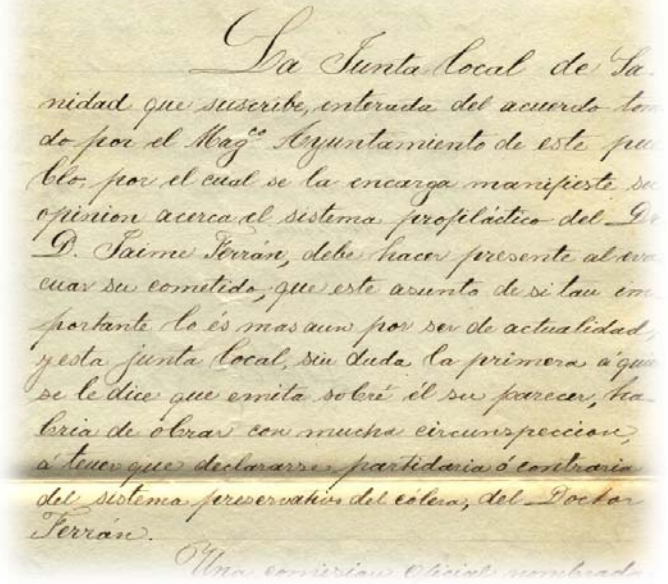 La Junta local de Sa-
nidad que suscribe, enterada del acuerdo toma
do por el Magco Ayuntamiento de este pue
blo, por el cual se la encarga manifieste su
opinion acerca el sistema profiláctico del Dr
D. Jaime Ferrán, debe hacer presente al eva
cuar su cometido, que este asunto de si tau im
portante lo és mas aun por ser de actualidad,
y esta junta local, sin duda la primera á quien
se le dice que emita sobré él su parecer, ha-
bria de obrar con mucha circunspeccion,
á tener que declararse partidaria ó contraria
del sistema preservativo del cólera, del Doctor
Ferrán.
Una comision oficial nombrada